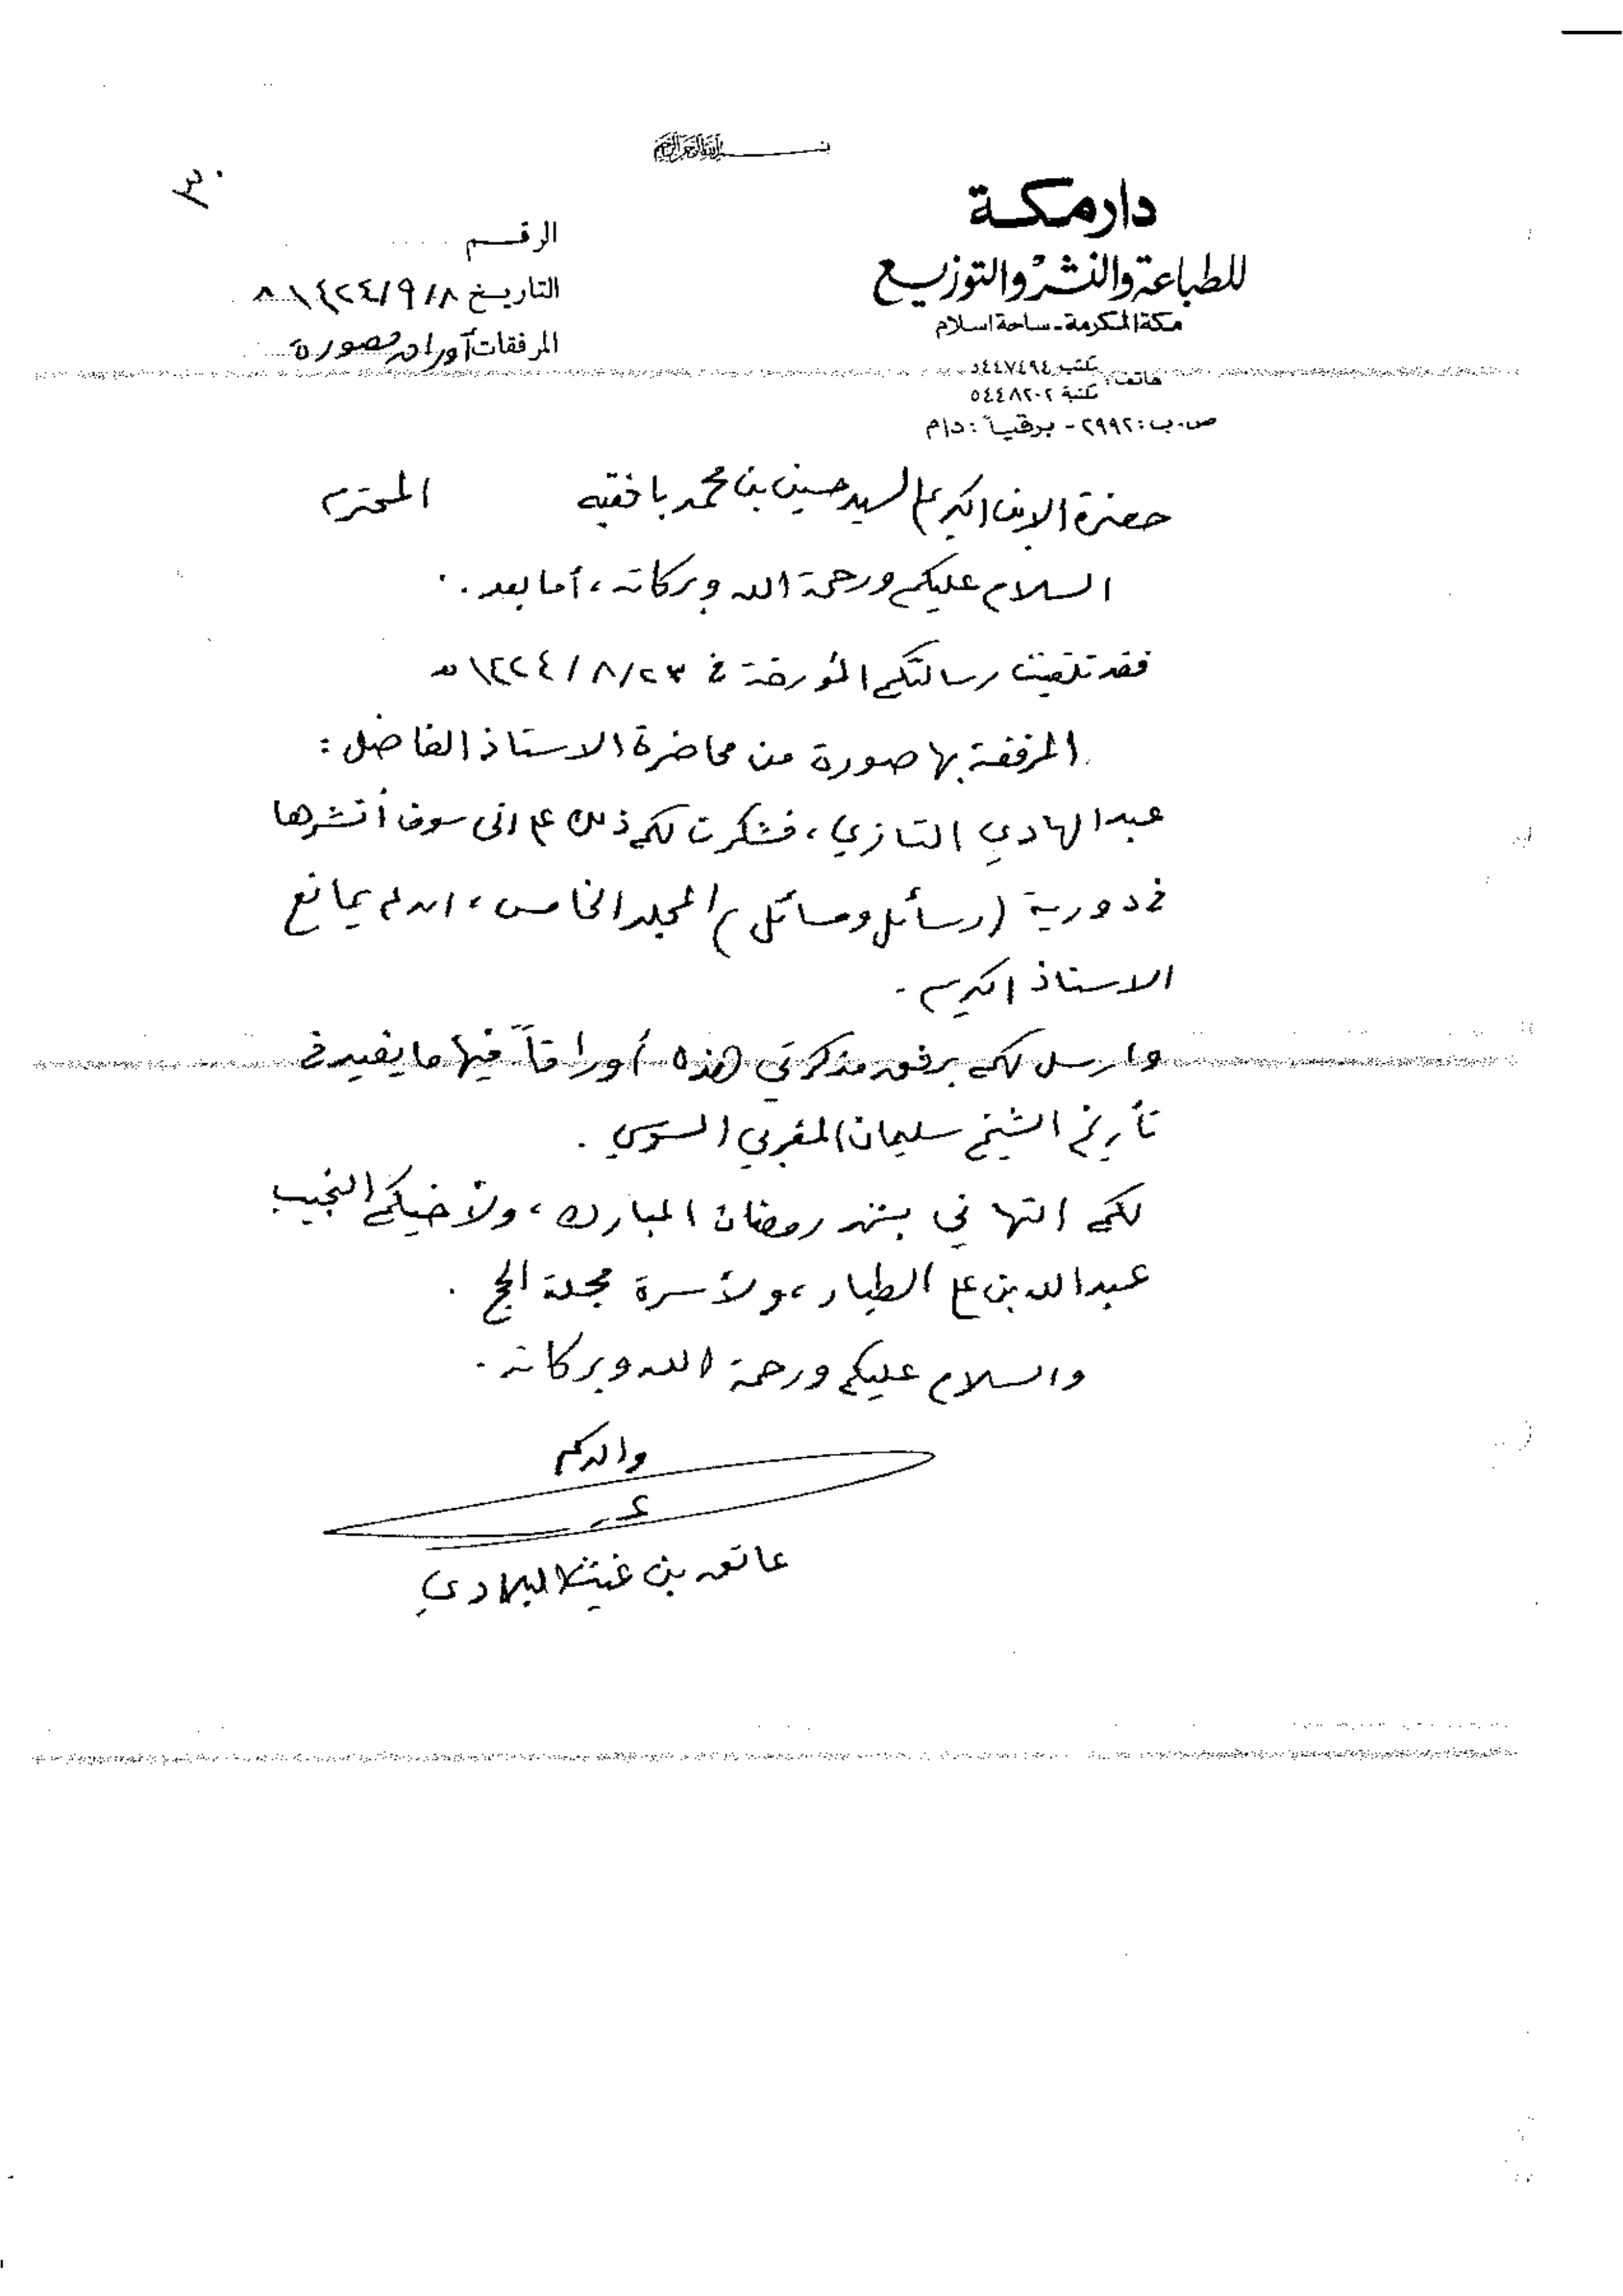 بسم الله الرحمن الرحيم
٣٠
دار مكة
للطباعة والنشر والتوزيع
مكة المكرمة - ساحة اسلام
هاتف: مكتب ٥٤٤٧٤٩٤
مكتبة ٥٤٤٨٢٠٢
ص.ب: ٢٩٩٢ - برقياً: دام
الرقم
التاريخ ١٤٢٤/٩/٨
المرفقات أوراق مصورة
حضرة الابن الكريم السيد حسين بن محمد بافقيه المحترم
السلام عليكم ورحمة الله وبركاته، أما بعد.
فقد تلقيت رسالتكم المؤرخة في ١٤٢٤/٨/٢٣ هـ
المرفقة بها صورة من محاضرة الاستاذ الفاضل:
عبد الهادي التازي، فشكرت لكم ذلك على اني سوف أنشرها
في دورية (رسائل ومسائل) المجلد الخامس، ان لم يمانع
الاستاذ الكريم.
وارسل لكم برفق مذكرتي هذه أوراقاً فيها ما يفيد في
تأريخ الشيخ سليمان المغربي السوسي.
لكم التهاني بشهر رمضان المبارك، ولأخيكم النجيب
عبد الله بن علي الطيار، ولأسرة مجلة الحج.
والسلام عليكم ورحمة الله وبركاته.
والدكم
عاتق بن غيث البلادي